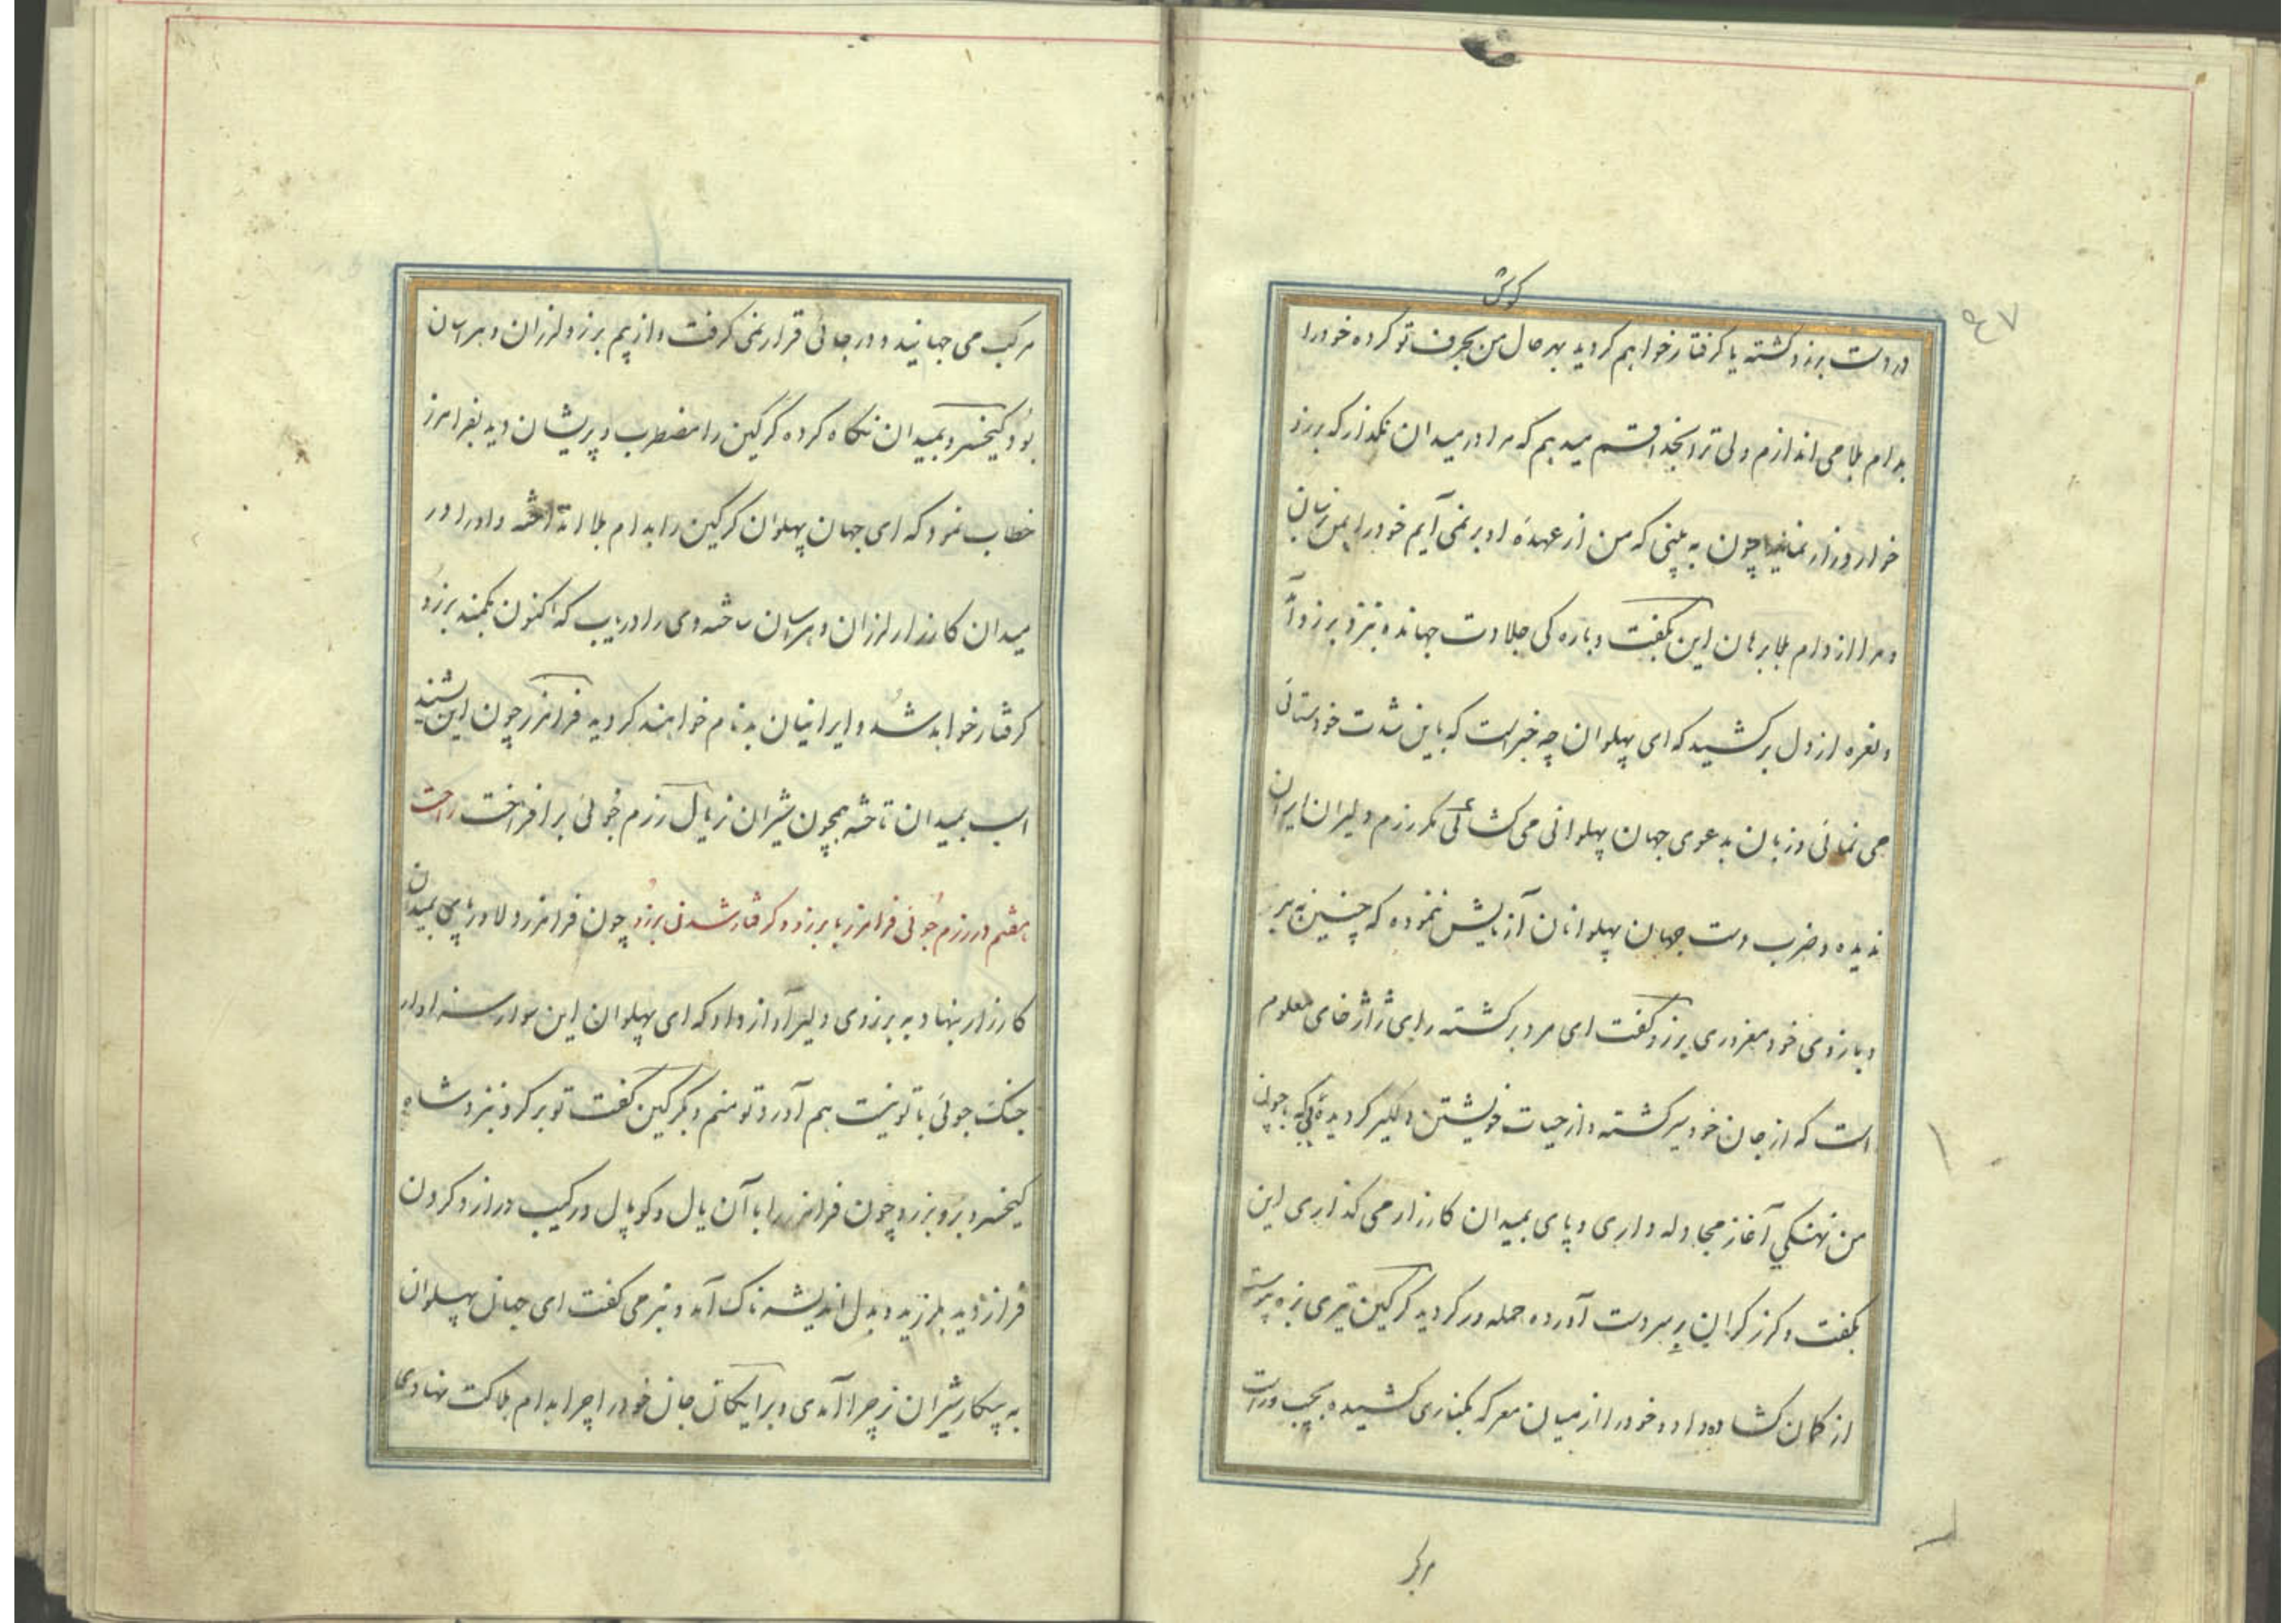 گوش
۵۴۷
در دست برزو کشته یا گرفتار خواهم گردید بهر حال من بحرف تو کرده خود را
بدام بلا می اندازم ولی ترا بخدا قسم میدهم که مرا در میدان نگذار که برزو
خوار و زار نماید چون به بینی که من از عهدهٔ او بر نمی آیم خود را بمن رسان
و مرا از دام بلا برهان این بگفت و باره کی جلادت جهانده و بنزد برزو آ
و نعره از دل بر کشید که ای پهلوان چه خبر است که باین شدت خودستائی
می نمائی و زبان بدعوی جهان پهلوانی می کشائی مگر رزم دلیران ایران
ندیده و ضرب دست جهان پهلوانان آزمایش ننموده که چنین به
و بازوی خود مغروری برزو گفت ای مرد برکشته رای ژاژ خای معلوم
است که از جان خود سیر گشته و از حیات خویشتن دلگیر گردیدهٔ که با چون
من نهنگی آغاز مجادله داری و پای بمیدان کارزار می گذاری این
بگفت و گرز گران بر سر دست آورده حمله ور گردید گرگین تیری بزه پیوسته
از کمان گشاد داد و خود را از میان معرکه بکناری کشیده بچپ و راست
مرکب
مرکب می جهانید و در جائی قرار نمی گرفت و از بیم برزو لرزان و هراسان
بود کیخسرو بمیدان نگاه کرده گرگین را مضطرب و پریشان دید بفرامرز
خطاب نمود که ای جهان پهلوان گرگین را بدام بلا انداخته و او را در
میدان کارزار لرزان و هراسان ساخته وی را دریاب که اکنون بکمند برزو
گرفتار خواهد شد و ایرانیان بدنام خواهند گردید فرامرز چون این بشنید
اسب بمیدان تاخته همچون شیران نر یال رزم جوئی بر افراخت
هفتم در رزم جوئی فرامرز با برزو و گرفتار شدنی برزو چون فرامرز دلاور پای بمیدان
کارزار بنهاد به برزوی دلیر آواز داد که ای پهلوان این سوار سزاوار
جنگ جوئی با تو نیست هم آورد تو منم و بگرگین گفت تو برگرد و نزد شاه
کیخسرو برو برزو چون فرامرز را با آن یال و کوپال و رکیب دراز و گردن
فراز دید بلرزید و بدل اندیشه ناک آمد و نیز می گفت ای جهان پهلوان
به پیکار شیران نر چرا آمدی و برایگان جان خود را چرا بدام هلاکت نهادی